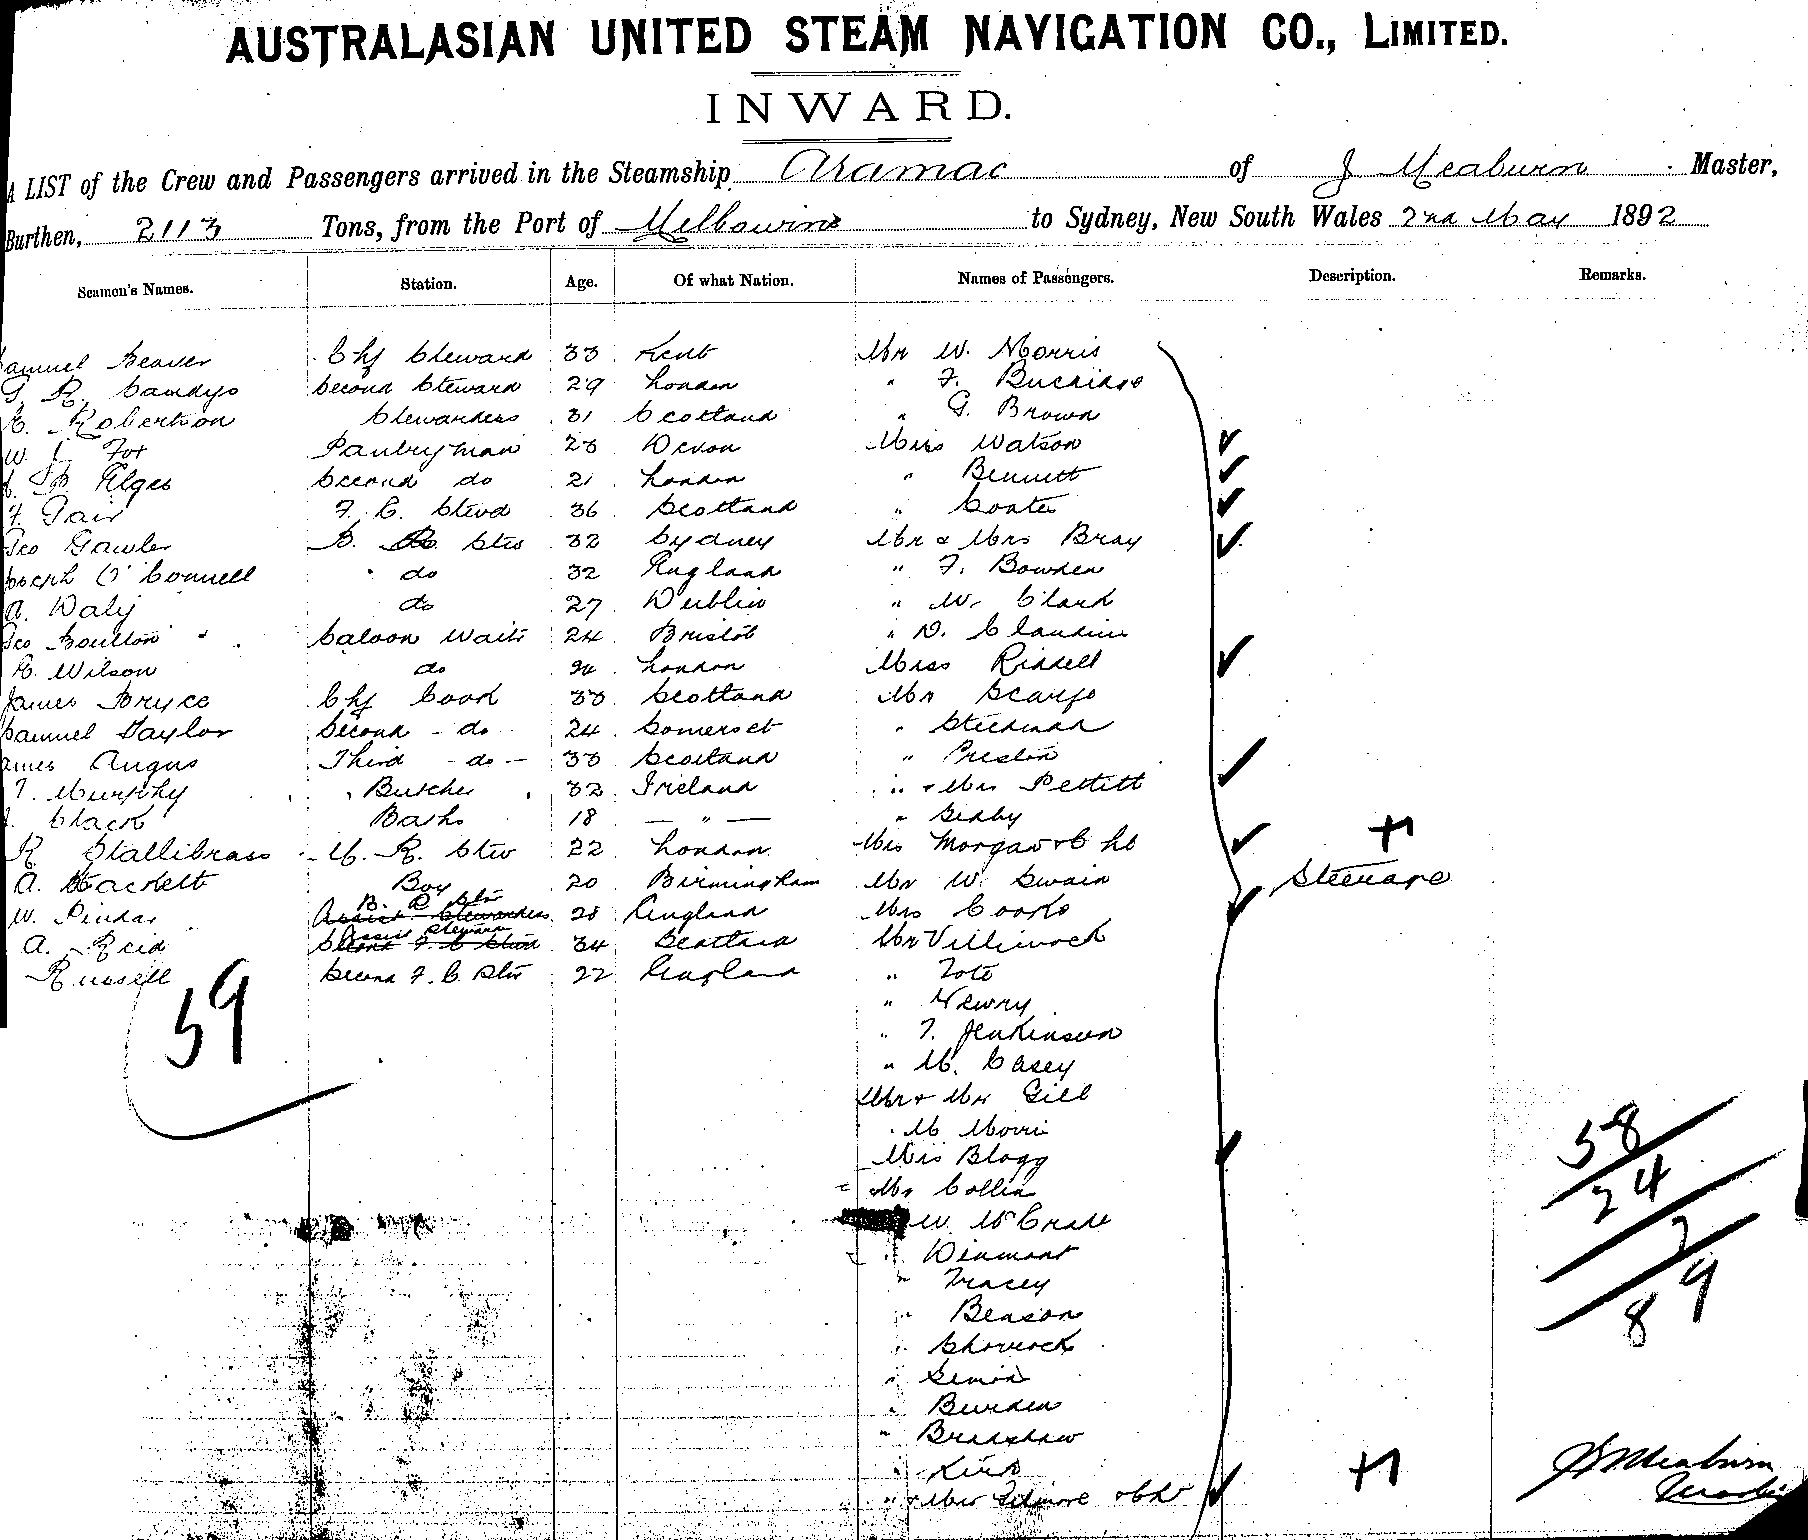 AUSTRALASIAN UNITED STEAM NAVIGATION CO., LIMITED.
INWARD.
A LIST of the Crew and Passengers arrived in the Steamship Aramac of J Meaburn Master,
Burthen, 2113 Tons, from the Port of Melbourne to Sydney, New South Wales 2nd May 1892
Seamen's Names. Station. Age. Of what Nation. Names of Passengers. Description. Remarks.
amuel Beaver Chf Steward 33 Kent Mr W. Morris
G. R. Sandys Second Steward 29 London " F. Buckidge
E. Robertson Stewardess 31 Scotland " G. Brown
W. J. Fox Pantryman 28 Devon Miss Watson
Elges Second do 21 London " Bennett
F. Gair F. C. Stwd 36 Scotland " Coates
Geo Gawler B. R. Stw 32 Sydney Mr & Mrs Bray
Joseph O'Connell do 32 England " F. Bowden
A. Daly do 27 Dublin " W. Clark
Geo Boulton Saloon Waitr 24 Bristol " D. Claudius
E. Wilson do London Miss Riddell
James Bryce Chf Cook 33 Scotland Mr Scarfe
Samuel Taylor Second - do - 24 Somerset " Steedman
ames Angus Third - do - 33 Scotland " Preston
T. Murphy Butcher 32 Ireland " & Mrs Pettitt
Slack Baths 18 — " — " Selby
R Stallibrass M. R. Stw 22 London Mrs Morgan & Ch
A. Hackett Boy 20 Birmingham Mr W. Swain Steerage
W. Pindar B. R. Stw Assist Stewardess 28 England Mrs Cooke
A. Reid Assist Steward Second F. C. Stwd 34 Scotland Mr Villimock
Russell Second F. C. Stw 22 England " Tote
59
" Newry
" T. Jenkinson
" M. Casey
Mr & Mrs Gill
" M Morris
Mis Blagg
Mr Collin
W. McCrae
" Diamant
" Tracey
" Benson
" Sherlock
" Simon
" Burden
" Bradshaw
" Kirk
" & Mrs Gilmore & Ch
58
24
7
89
J Meaburn
Master